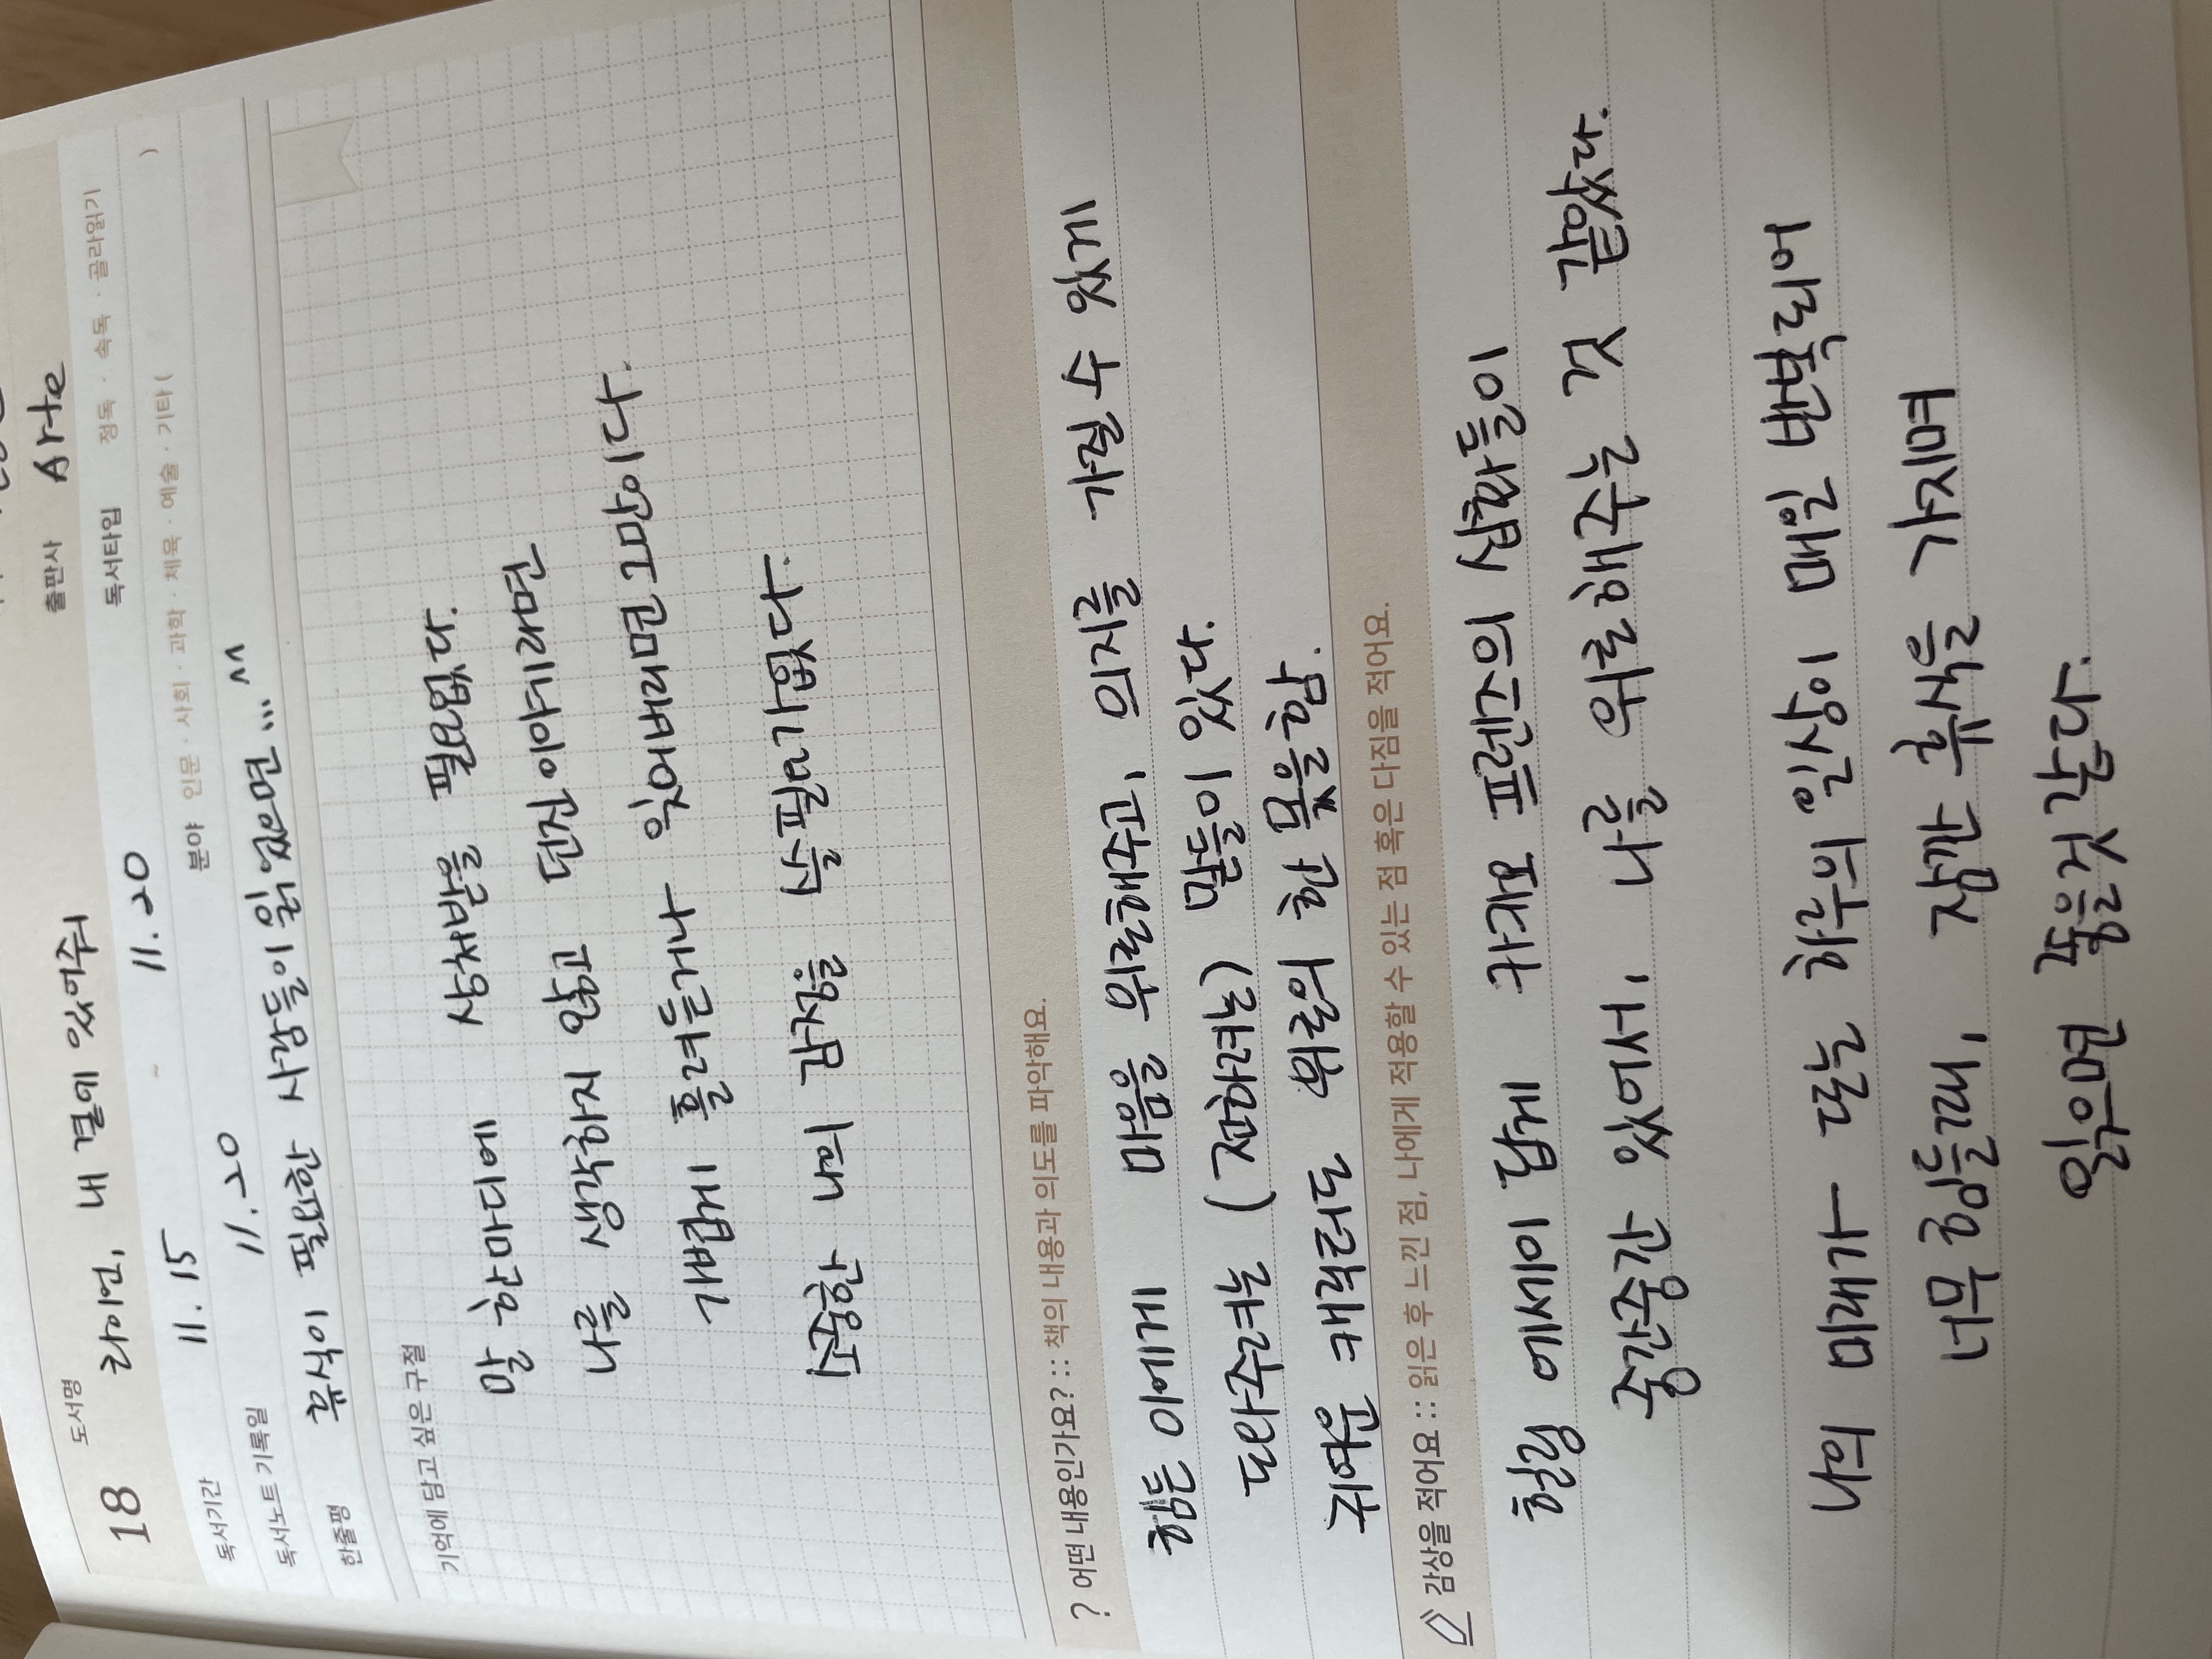 18 도서명 라이언, 내 곁에 있어줘
출판사 Arte
독서기간 11.15 ~ 11.20
독서타입 정독 · 속독 · 골라읽기
독서노트 기록일 11.20
분야 인문 · 사회 · 과학 · 체육 · 예술 · 기타 ( )
한줄평 휴식이 필요한 사람들이 읽었으면... ^^
기억에 담고 싶은 구절
말 한마디에 상처받을 필요없다.
나를 생각하지 않고 던진 이야기라면
가볍게 흘려듣거나 잊어버리면 그만이다.
소중한 나의 감정을 쓸필요가없다.
? 어떤 내용인가요? :: 책의 내용과 의도를 파악해요.
힘든 이에게 마음을 위로해주고, 의지를 가질 수 있게
도와주려는 (전하려는) 말들이 있다.
귀여운 캐릭터도 위로의 한 몫을 함.
감상을 적어요 :: 읽은 후 느낀 점, 나에게 적용할 수 있는 점 혹은 다짐을 적어요.
힐링 에세이 답게 카카오 프렌즈의 삽화들이
중간중간 있어서, 나를 위로해주는 것 같았다.
나의 미래가 또는 하루의 일상이 매일 반복되어
너무 힘들때, 잠깐 휴식을 가지며
읽으면 좋을것 같다.